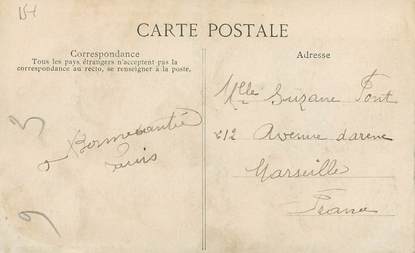 154
CARTE POSTALE
Correspondance
Tous les pays étrangers n'acceptent pas la
correspondance au recto, se renseigner à la poste.
Adresse
Bonne santé
Louis
Mlle Suzane Pont
212 Avenue darene
Marseille
France